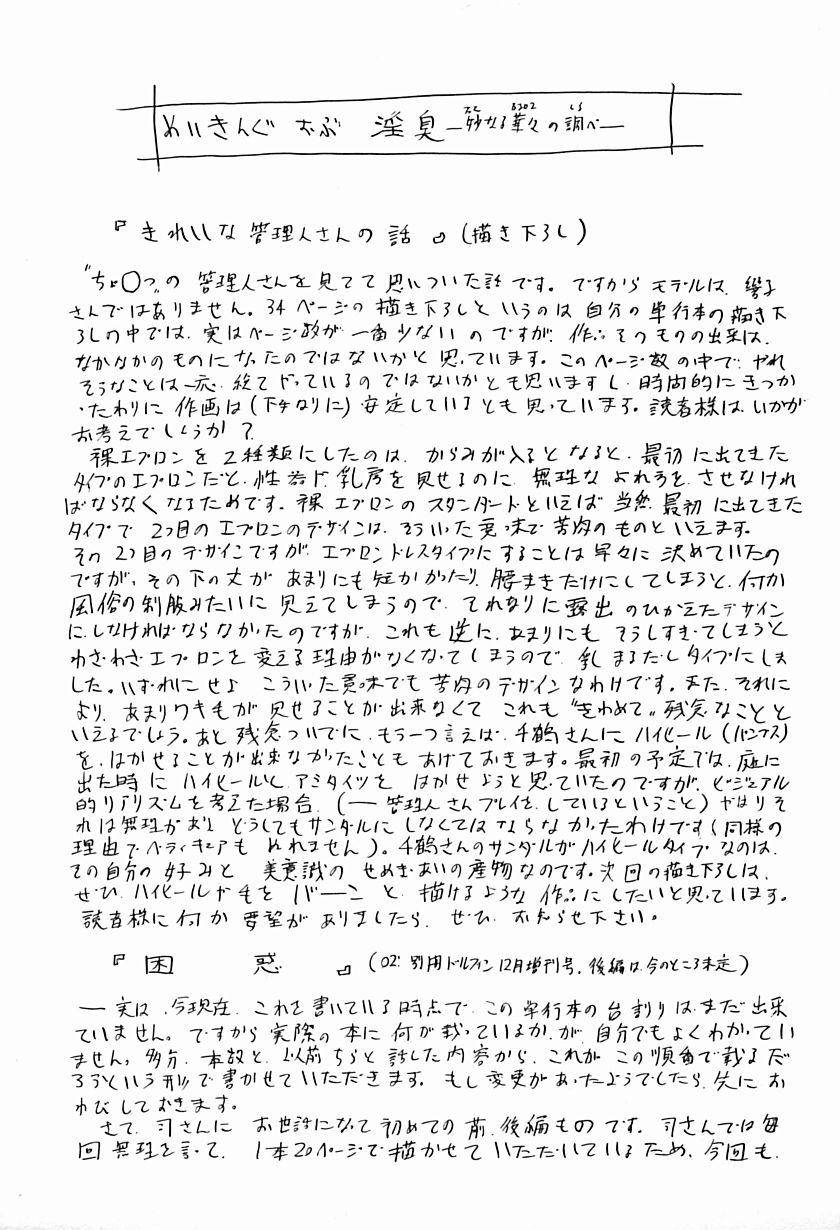 めいきんぐ おぶ 淫臭 ―妙なる華々の調べ―
『きれいな管理人さんの話』(描き下ろし)
"ちょ○っ"の 管理人さんを見てて思いついた話です。ですからモデルは、響子
さんではありません。34ページの描き下ろしというのは自分の単行本の描き下
ろしの中では、実はページ数が一番少ないのですが、作品そのものの出来は、
なかなかのものになったのではないかと思っています。このページ数の中で、やれ
そうなことは一応、総てやっているのではないかとも思いますし、時間的にきつか
ったわりに作画は(下手なりに)安定しているとも思っています。読者様は、いかが
お考えでしょうか?
裸エプロンを2種類にしたのは、からみが入るとなると、最初に出てきた
タイプのエプロンだと、性器や、乳房を見せるのに、無理なよれ方を、させなけれ
ばならなくなるためです。裸エプロンのスタンダードといえば当然、最初に出てきた
タイプで 2つ目のエプロンのデザインは、そういった意味で苦肉のものといえます。
その2つ目のデザインですが、エプロンドレスタイプにすることは早々に決めていたの
ですが、その下の丈が あまりにも短かかったり、腰まきだけにしてしまうと、何か
風俗の制服みたいに見えてしまうので、それなりに露出のひかえたデザイン
に、しなければならなかったのですが、これも逆に、あまりにもそうしすぎてしまうと
わざわざエプロンを変える理由がなくなってしまうので、乳まるだしタイプにしま
した。いずれにせよ こういった意味でも苦肉のデザインなわけです。また、それに
より、あまりワキ毛が見せることが出来なくて これも"きわめて"残念なことと
いえるでしょう。あと残念ついでに、もう一つ言えば、千鶴さんにハイヒール(パンプス)
を、はかせることが出来なかったことも あげておきます。最初の予定では、庭に
出た時に ハイヒールと、アミタイツを はかせようと思っていたのですが、ビジュアル
的リアリズムを考えた場合、(― 管理人さんプレイを、しているということ)やはりそ
れは無理があり、どうしてもサンダルにしなくてはならなかったわけです(同様の
理由でペディキュアも ぬれません)。千鶴さんのサンダルがハイヒールタイプなのは、
その自分の好みと 美意識の せめぎあいの産物なのです。次回の描き下ろしは、
ぜひ、ハイヒールや毛を バーーンと、描けるような作品にしたいと思っています。
読者様に何か 要望が ありましたら、ぜひ、お知らせ下さい。
『困 惑』(02'別冊ドルフィン12月増刊号、後編は、今のところ未定)
― 実は、今現在、これを書いている時点で、この単行本の台割りは、まだ出来
ていません。ですから実際の本に何が載っているか、が、自分でもよくわかってい
ません。多分、本数と、以前ちらと話した内容から、これが この順番で載るだ
ろうという形で書かせていただきます。もし変更があったようでしたら、先にお
わびしておきます。
さて、司さんに お世話になって初めての前、後編ものです。司さんでは毎
回 無理を言って、1本20ページで描かせて いただいているため、今回も、